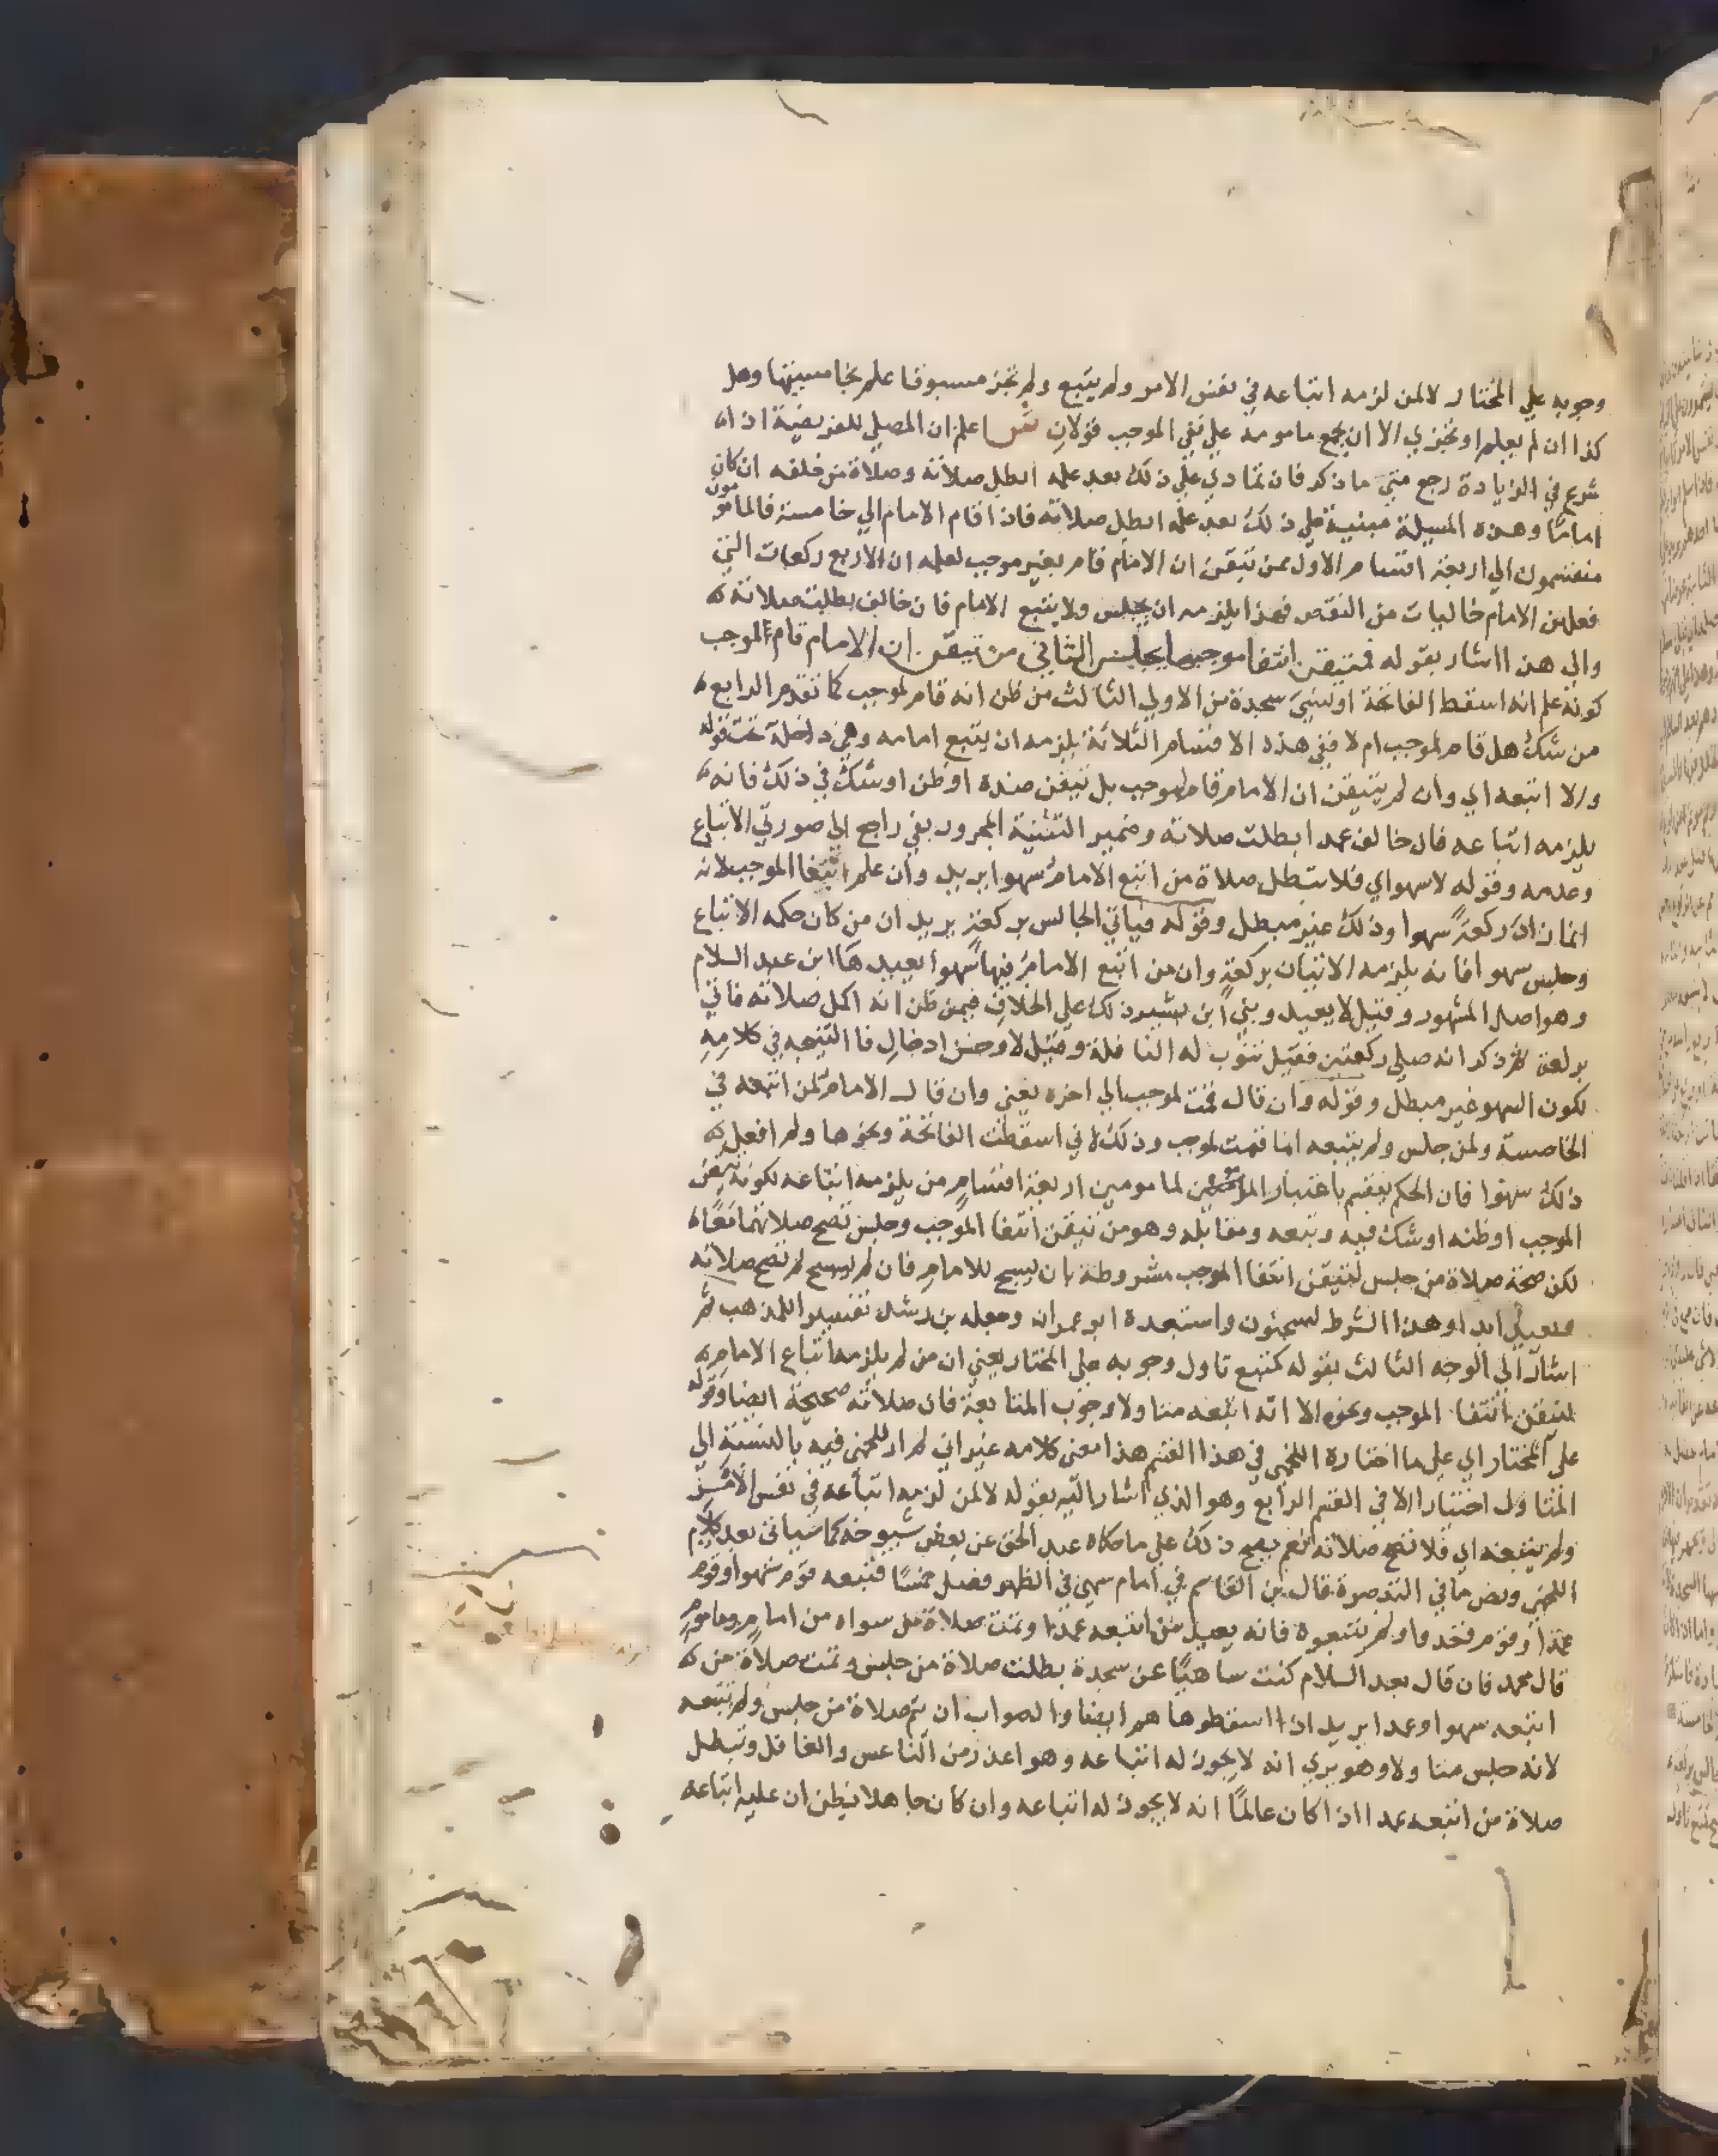 وجوبه علي المختار لا لمن لزمه اتباعه في نفس الامر ولم يتبع ولم تجز مسبوقا علم بخامسيتها وهل
كذا ان لم يعلم او تجزي الا ان يجمع مامومه علي نفي الموجب قولان ش اعلم ان المصلي للفريضة اذا
شرع في الزيادة رجع متي ما ذكر فان تمادي علي ذلك بعد علمه ابطل صلاته وصلاة من خلفه ان كان
اماما وهذه المسيلة مبنية علي ذلك بعد علمه ابطل صلاته فاذا قام الامام الي خامسة فالمامومون
منقسمون الي اربعة اقسام الاول من تيقن ان الامام قام بغير موجب لعلمه ان الاربع ركعات التي
فعلهن الامام خاليات من النقص فهذا يلزمه ان يجلس ولا يتبع الامام فان خالف بطلت صلاته
والي هذا اشار بقوله فمتيقن انتفا موجبها يجلس الثاني من تيقن ان الامام قام لموجب
كونه علم انه اسقط الفاتحة او نسي سجدة من الاولي الثالث من ظن انه قام لموجب كما تقدم الرابع
من شك هل قام لموجب ام لا ففي هذه الاقسام الثلاثة يلزمه ان يتبع امامه وهي داخلة تحت قوله
والا اتبعه اي وان لم يتيقن ان الامام قام لموجب بل تيقن ضده او ظن او شك في ذلك فانه
يلزمه اتباعه فان خالف عمدا بطلت صلاته وضمير التثنية المجرور بفي راجع الي صورتي الاتباع
وعدمه وقوله لا سهوا اي فلا تبطل صلاة من اتبع الامام سهوا يريد وان علم انتفا الموجب لانه
انما زاد ركعة سهوا وذلك غير مبطل وقوله فياتي الجالس بركعة يريد ان من كان حكمه الاتباع
وجلس سهوا فانه يلزمه الاتيان بركعة وان من اتبع الامام فيها سهوا يعيدها ابن عبد السلام
وهو اصل المشهور وقيل لا يعيد وبني ابن بشير ذلك علي الخلاف فيمن ظن انه اكمل صلاته فاتي
بركعة ثم ذكر انه صلي ركعتين فقيل تنوب له النافلة وقيل لا وحسن ادخال فا النتيجه في كلامه
لكون السهو غير مبطل وقوله وان قال قمت لموجب الي اخره يعني وان قال الامام لمن اتبعه في
الخامسة ولمن جلس ولم يتبعه انما قمت لموجب وذلك لاني اسقطت الفاتحة ونحوها ولم افعل
ذلك سهوا فان الحكم ينقسم باعتبار المامومين اربعة اقسام من يلزمه اتباعه لكونه تيقن
الموجب او ظنه او شك فيه وتبعه ومقابله وهو من تيقن انتفا الموجب وجلس تصح صلاتهما معا
لكن صحة صلاة من جلس لتيقن انتفا الموجب مشروطة بان يسبح للامام فان لم يسبح لم تصح صلاته
ويعيد ابدا وهذا الشرط لسحنون واستبعده ابو عمران وجعله بن رشد تفسيرا للمذهب ثم
اشار الي الوجه الثالث بقوله كمتبع تاول وجوبه علي المختار يعني ان من لم يلزمه اتباع الامام
لتيقن انتفا الموجب ونحوه الا انه اتبعه متاولا وجوب المتابعة فان صلاته صحيحة ايضا وقوله
علي المختار اي علي ما اختاره اللخمي في هذا القسم هذا معني كلامه غير اني لم ار للخمي فيه بالنسبة الي
المتاول اختيارا الا في القسم الرابع وهو الذي اشار اليه بقوله لا لمن لزمه اتباعه في نفس الامر
ولم يتبعه اي فلا تصح صلاته نعم يصح ذلك علي ما حكاه عبد الحق عن بعض شيوخه كما سياتي بعد كلام
اللخمي ونص ما في التبصرة قال بن القاسم في امام سهي في الظهر فصلي خمسا فتبعه قوم سهوا وقوم
عمدا وقوم قعدوا ولم يتبعوه فانه يعيد من اتبعه عمدا وتمت صلاة من سواه من امام وماموم
قال محمد فان قال بعد السلام كنت ساهيا عن سجدة بطلت صلاة من جلس وتمت صلاة من
اتبعه سهوا وعمدا يريد اذا اسقطوها هم ايضا والصواب ان تتم صلاة من جلس ولم يتبعه
لانه جلس متاولا وهو يري انه لا يجوز له اتباعه وهو اعذر من الناعس والغافل وتبطل
صلاة من اتبعه عمدا اذا كان عالما انه لا يجوز له اتباعه وان كان جاهلا يظن ان عليه اتباعه